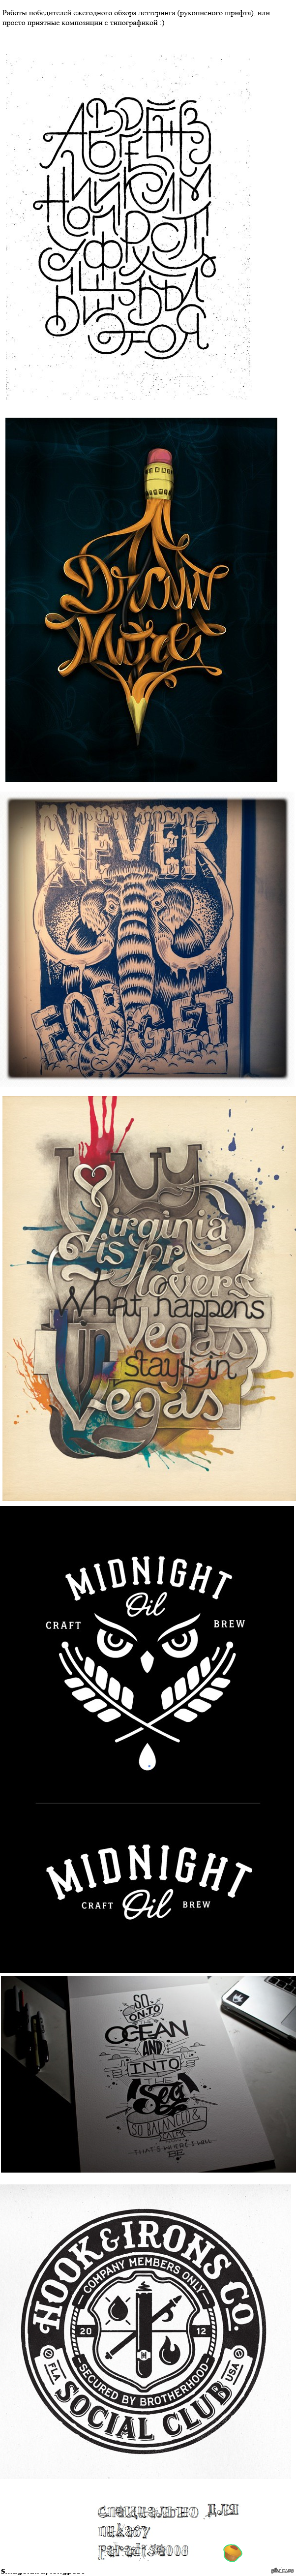 Работы победителей ежегодного обзора леттеринга (рукописного шрифта), или
просто приятные композиции с типографикой :)
АБВГДЕЁЖЗ
ИЙКЛМ
НОПРСТ
УФХЦЧ
ШЩЪЫЬ
ЭЮЯ
Draw
More
NEVER
FORGET
I NY
Virginia
is for
lovers
What happens
in Vegas
stays in
Vegas
MIDNIGHT
Oil
CRAFT BREW
MIDNIGHT
CRAFT Oil BREW
SO
ON TO
OCEAN
AND
INTO
THE
Sea
SO BALANCED &
THAT'S WHERE I WILL
BE
HOOK & IRONS CO.
COMPANY MEMBERS ONLY
20 12
SECURED BY BROTHERHOOD
FLA USA
SOCIAL CLUB
специально для
pikaby
paradise000
pikabu.ru